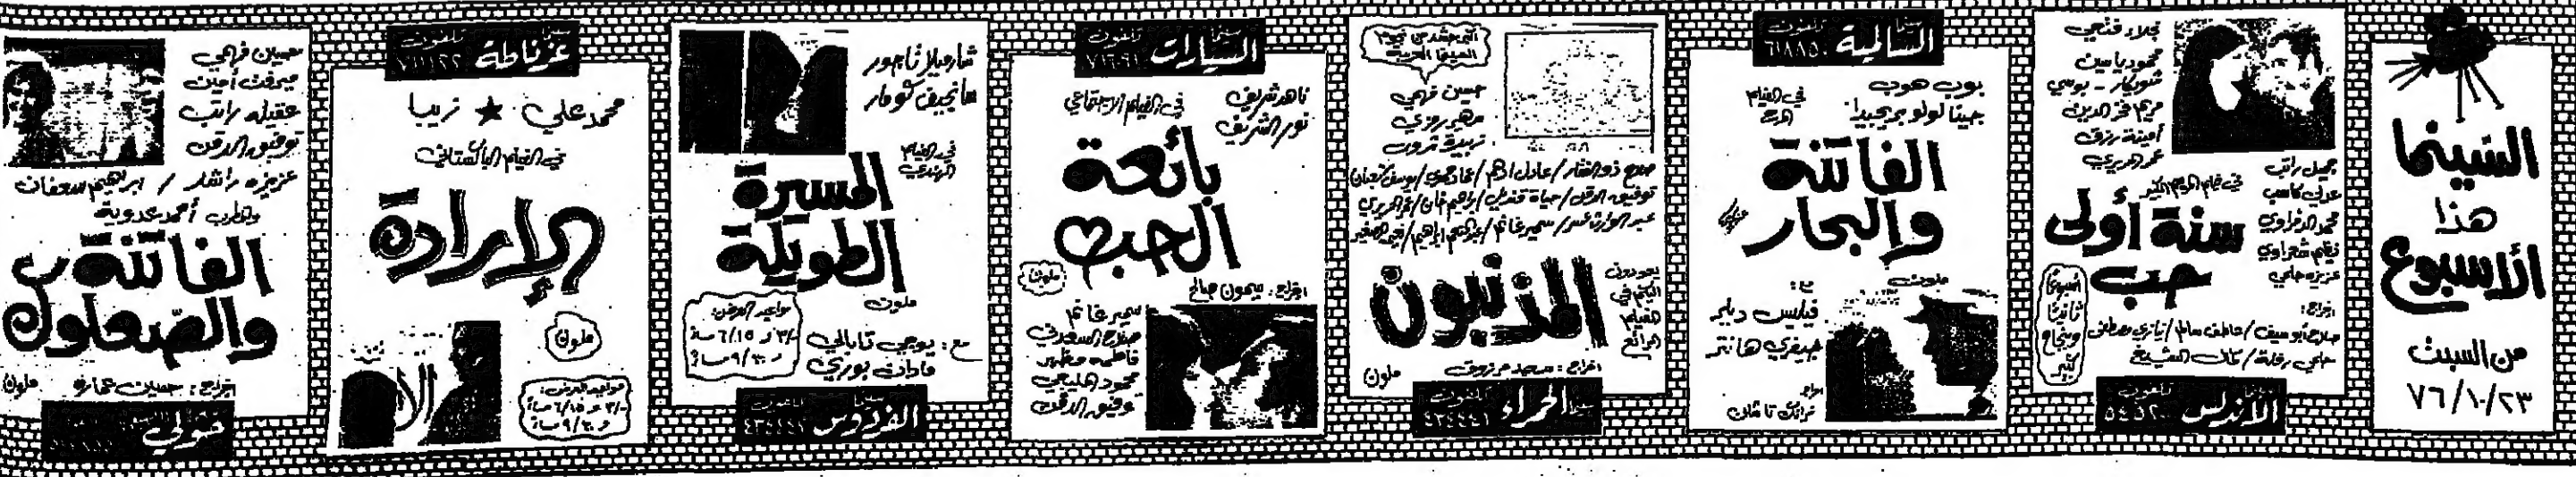 السينما
هذا
الأسبوع
من السبت
٧٦/١٠/٢٣
نجلاء فتحي
محمود ياسين
شويكار - بوسي
مريم فخر الدين
أمينة رزق
عمر الحريري
جميل راتب
عدلي كاسب
محمد الدفراوي
نعيمة شعراوي
عزيزة حلمي
في فيلم الكبير
سنة أولى
حب
اخراج:
صلاح أبو سيف / عاطف سالم / نيازي مصطفى
حلمي رفلة / كمال الشيخ
أسبوعًا
ثانيًا
وبنجاح
كبير
سينما الأندلس تلفون
سينما السالمية تلفون
٦١٨٨٥٠
بوب هوب
جينا لولو بريجيدا
في الفيلم
المرح
الفاتنة
والبحار
ملون
مع:
فيليس ديلر
جيفري هانتر
اخراج
فرانك تاشلن
السينما العربية
حسين فهمي
سهير رمزي
زبيدة ثروت
صلاح ذو الفقار / عادل أدهم / عماد حمدي / يوسف شعبان
توفيق الدقن / حياة قنديل / ابراهيم خان / عمر الحريري
عبد الوارث عسر / سمير غانم / عبد المنعم ابراهيم / نعيمة الصغير
يعودون
اليكم في
الفيلم
الرائع
المذنبون
اخراج: سعيد مرزوق
ملون
سينما الحمراء تلفون
٤٣٤٤٤١
سينما السيارات تلفون
ناهد شريف
نور الشريف
في الفيلم الاجتماعي
بائعة
الحب
ملون
اخراج: سيمون صالح
سمير غانم
صلاح السعدني
فاطمة مظهر
محمود المليجي
توفيق الدقن
شارميلا تاجور
سانجيف كومار
في الفيلم
الهندي
المسيرة
الطويلة
ملون
مواعيد العرض:
٣/- و ٦/١٥ مساءً
و ٩/٣٠ مساءً
مع:
سينما الفردوس تلفون
سينما غرناطة تلفون
٧١١١٢٢
محمد علي ★ زيبا
في الفيلم الباكستاني
الإرادة
ملون
مواعيد العرض:
٣/- و ٦/١٥ مساءً
و ٩/٣٠ مساءً
حسين فهمي
ميرفت أمين
عقيلة راتب
توفيق الدقن
عزيزة راشد / ابراهيم سعفان
والمطرب أحمد عدوية
الفاتنة
والصعلوك
اخراج: حسين عمارة
ملون
حولي